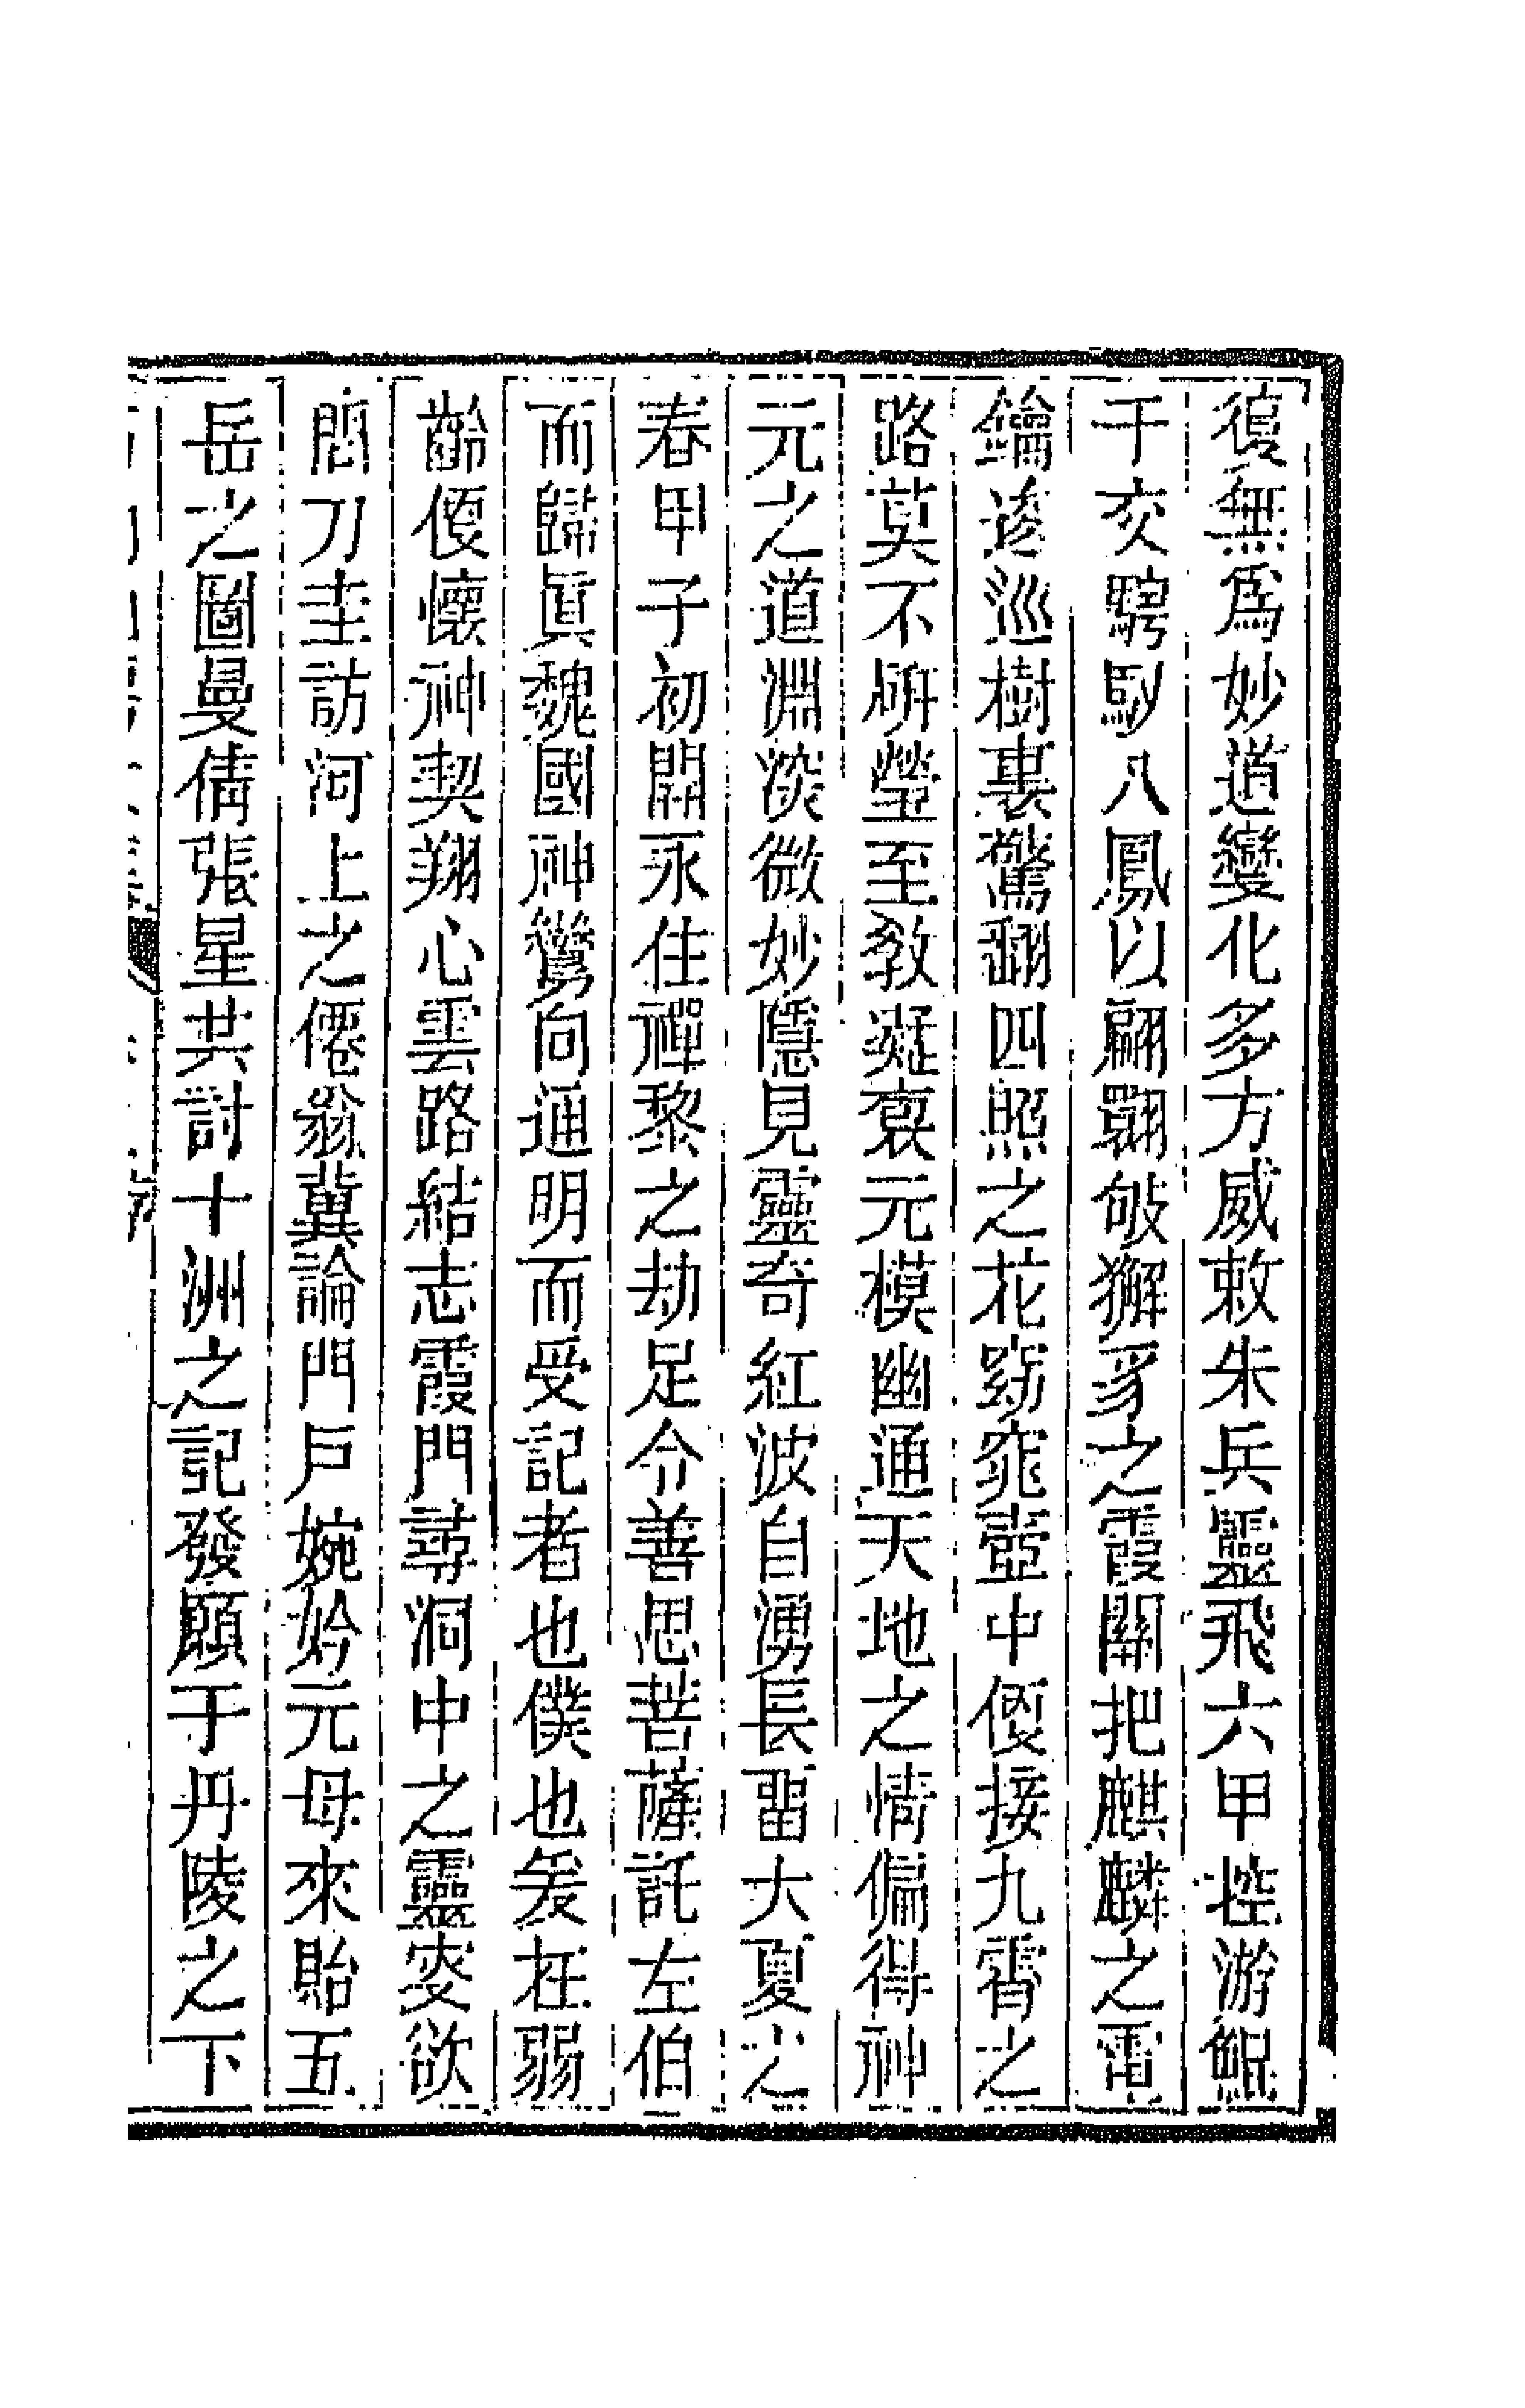 復無爲妙道變化多方威敕朱兵靈飛六甲控游鯤
于交騁馭八鳳以翩翾皱獬豸之霞關把麒麟之電
鑰逡巡樹裏驚翻四照之花窈窕壺中便接九霄之
路莫不硏瑩至敎凝衷元模幽通天地之情偏得神
元之道淵淡微妙隱見靈奇紅波自湧長留大夏之
春甲子初開永住禪黎之劫足令善思菩薩託左伯
而歸眞魏國神鸞向通明而受記者也僕也爰在弱
齡便懷神契翔心雲路結志霞門尋洞中之靈䆁欲
問刀圭訪河上之僊翁冀論門戶婉妗元母來貽五
岳之圖曼倩張星共討十洲之記發願于丹陵之下